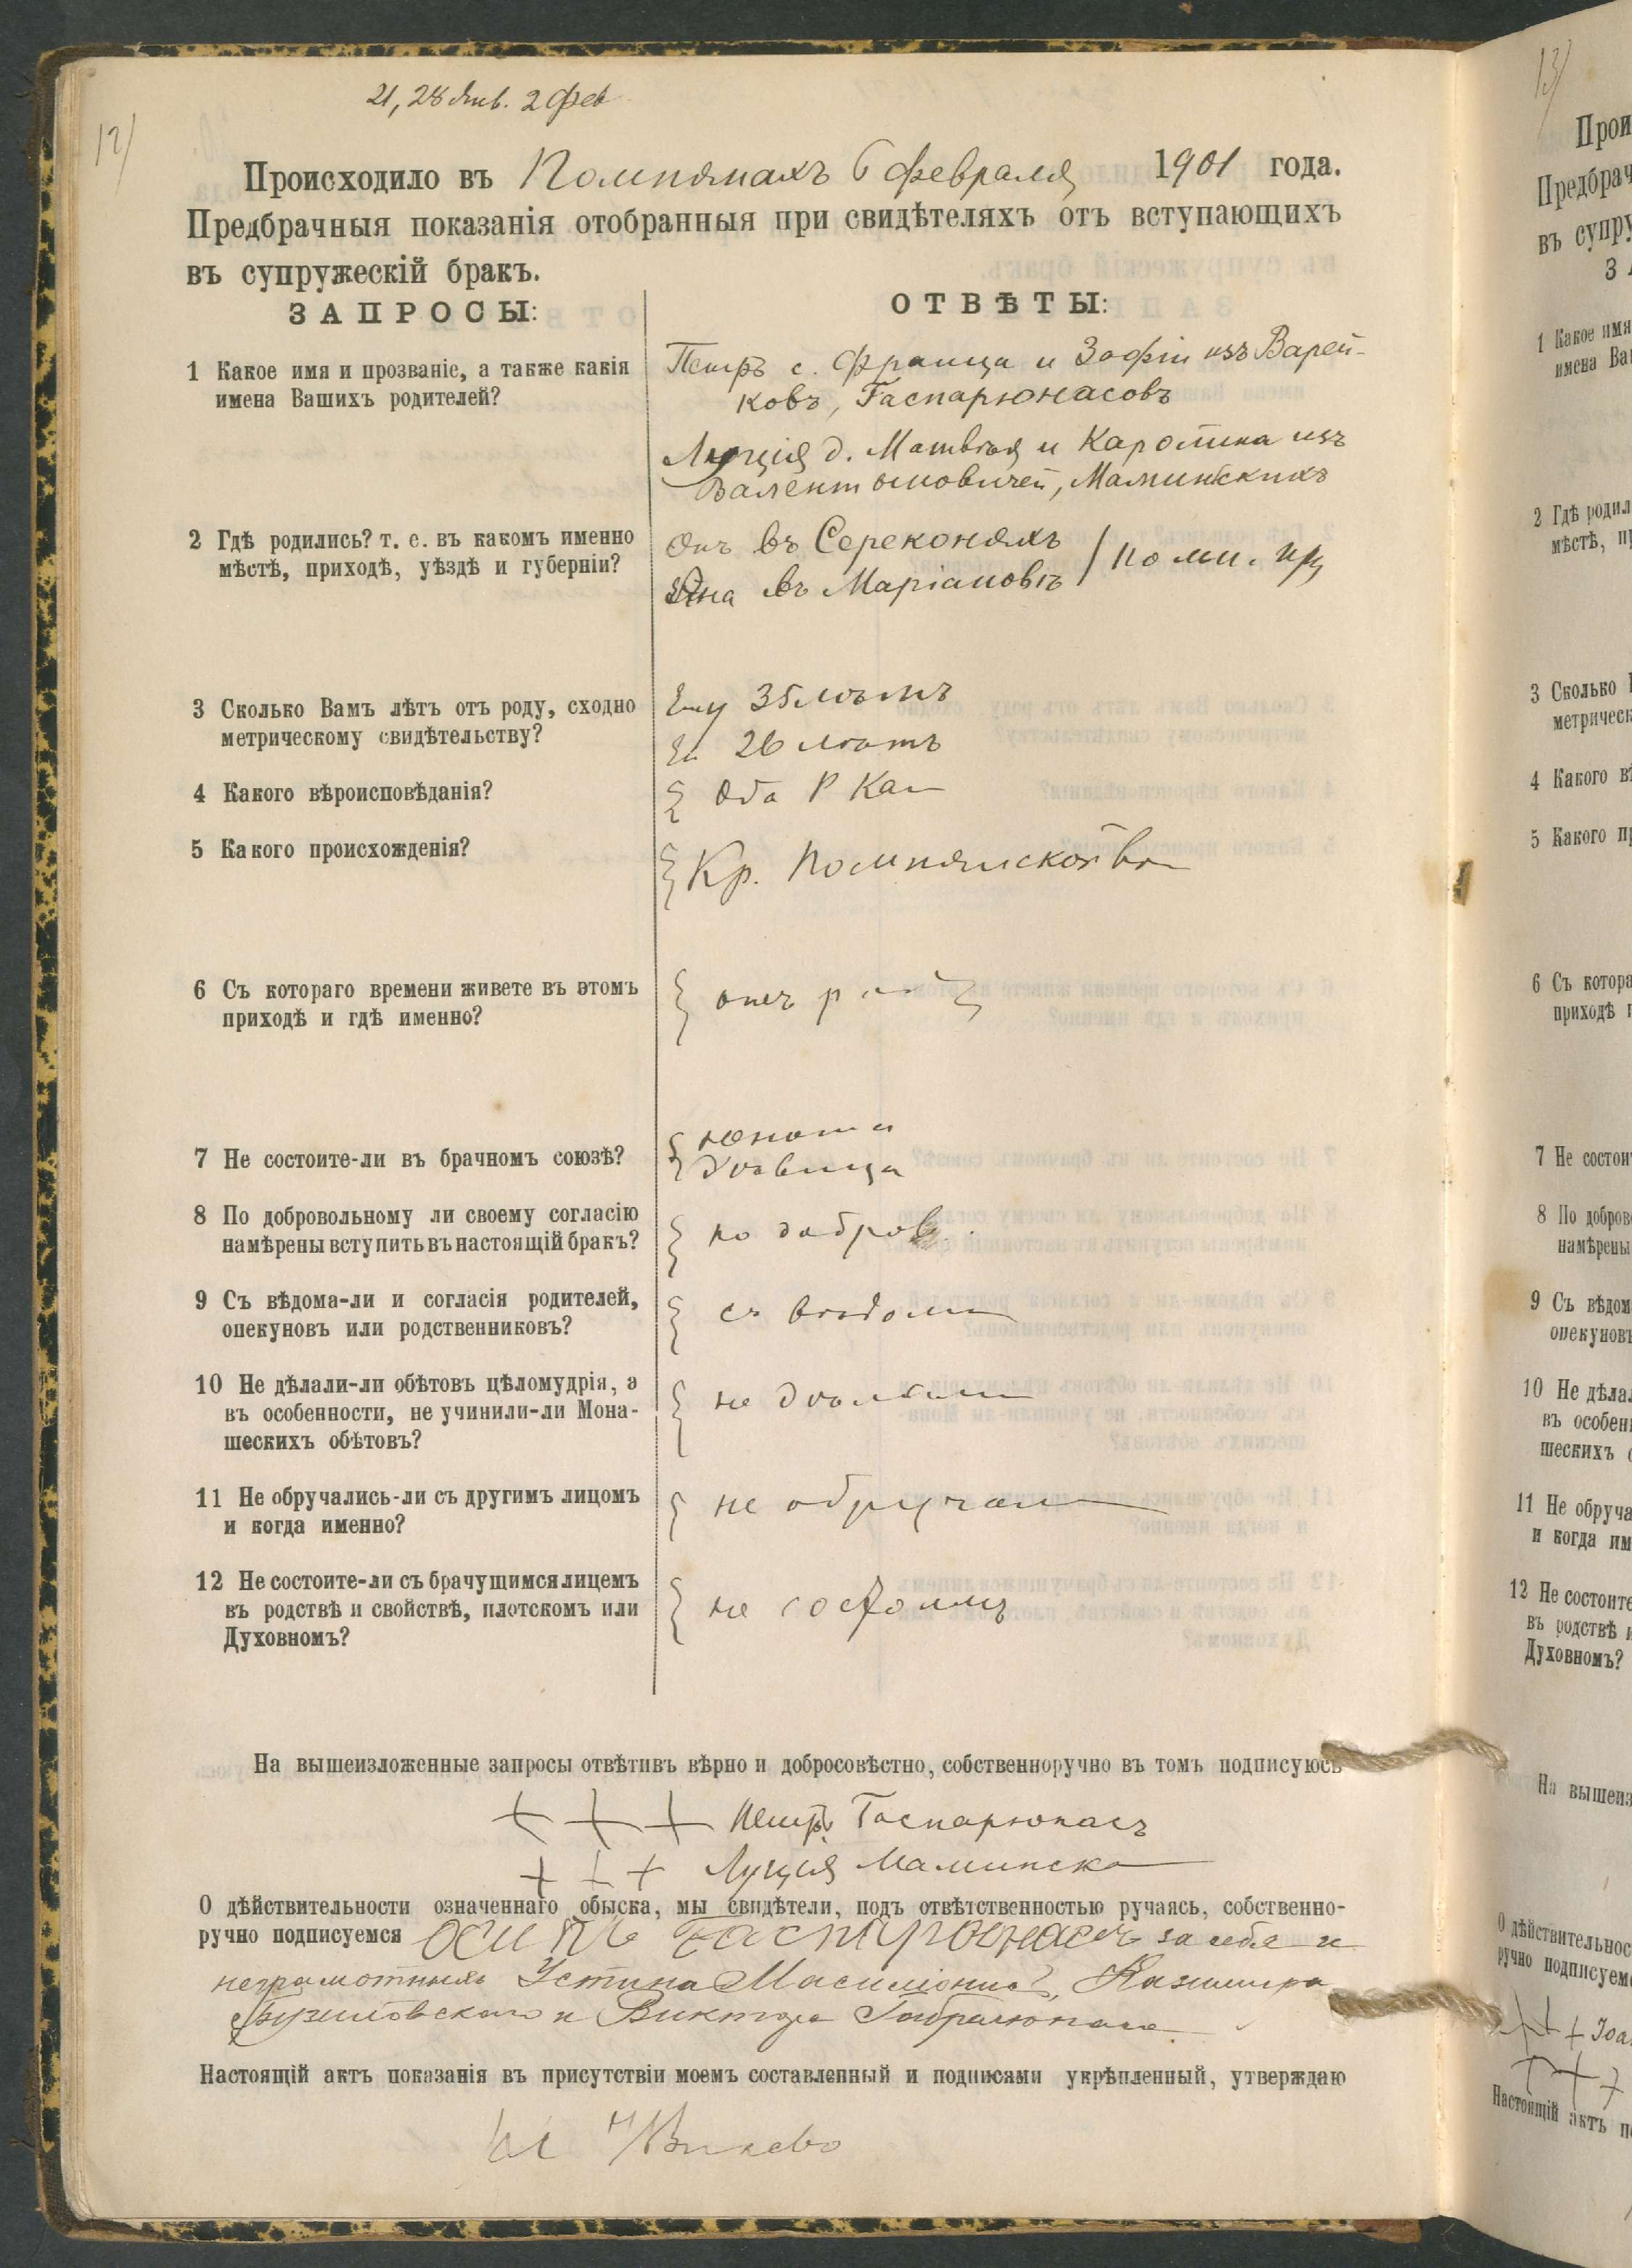 21, 28 Янв. 2 Фев
12)
Происходило въ Помпянахъ 6 февраля 1901 года.
Предбрачныя показанія отобранныя при свидѣтеляхъ отъ вступающихъ
въ супружескій бракъ.
ЗАПРОСЫ:
ОТВѢТЫ:
1 Какое имя и прозваніе, а также какія
имена Вашихъ родителей?
Петръ с. Франца и Зофіи изъ Варей-
ковъ, Гаспарюнасовъ
Люція д. Матвѣя и Каролина изъ
Валентыновичей, Маминскихъ
2 Гдѣ родились? т. е. въ какомъ именно
мѣстѣ, приходѣ, уѣздѣ и губерніи?
Онъ въ Середоняхъ
Она въ Маріановѣ / помп. пр
3 Сколько Вамъ лѣтъ отъ роду, сходно
метрическому свидѣтельству?
Ему 35 лѣтъ
Ей 26 лѣтъ
4 Какого вѣроисповѣданія?
Оба Р Кат
5 Какого происхожденія?
Кр. Помпянской во
6 Съ котораго времени живете въ этомъ
приходѣ и гдѣ именно?
отъ р
7 Не состоите-ли въ брачномъ союзѣ?
юноша
дѣвица
8 По добровольному ли своему согласію
намѣрены вступить въ настоящій бракъ?
по добров
9 Съ вѣдома-ли и согласія родителей,
опекуновъ или родственниковъ?
съ вѣдома
10 Не дѣлали-ли обѣтовъ цѣломудрія, а
въ особенности, не учинили-ли Мона-
шескихъ обѣтовъ?
не дѣлали
11 Не обручались-ли съ другимъ лицомъ
и когда именно?
не обручали
12 Не состоите-ли съ брачущимся лицемъ
въ родствѣ и свойствѣ, плотскомъ или
Духовномъ?
не состоимъ
На вышеизложенные запросы отвѣтивъ вѣрно и добросовѣстно, собственноручно въ томъ подписуюсь
+ + + Петръ Гаспарюнасъ
+ + + Луція Маминска
О дѣйствительности означеннаго обыска, мы свидѣтели, подъ отвѣтственностью ручаясь, собственно-
ручно подписуемся Осипъ Гаспарюнасъ за себя и
неграмотныхъ Устина Казимира
и Виктора Габралюнаса
Настоящій актъ показанія въ присутствіи моемъ составленный и подписами укрѣпленный, утверждаю
13)
Прои
Предбрач
въ супру
З А
1 Какое имя
имена Ва
2 Гдѣ родил
мѣстѣ, п
3 Сколько
метрическ
4 Какого в
5 Какого п
6 Съ котора
приходѣ
7 Не состои
8 По добров
намѣрены
9 Съ вѣдом
опекунов
10 Не дѣла
въ особен
шескихъ
11 Не обруча
и когда им
12 Не состоите
въ родствѣ и
Духовномъ?
На вышеиз
О дѣйствительнос
ручно подписуем
+ + + Іоа
+ + +
Настоящій актъ п